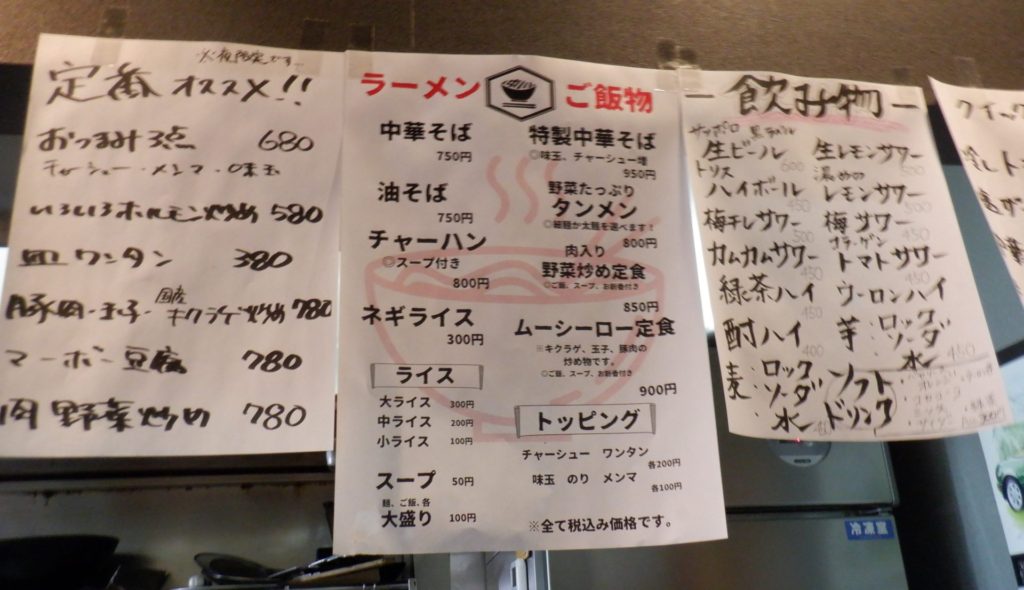 ※夜限定です
定番 オススメ!!
おつまみ3点 680
チャーシュー・メンマ・味玉
いろいろホルモン炒め 580
皿ワンタン 380
豚肉・玉子・国産キクラゲ炒め 780
マーボー豆腐 780
肉野菜炒め 780
ラーメン ご飯物
中華そば
750円
油そば
750円
チャーハン
◎スープ付き
800円
ネギライス
300円
ライス
大ライス 300円
中ライス 200円
小ライス 100円
スープ 50円
麺、ご飯、各
大盛り 100円
特製中華そば
◎味玉、チャーシュー増
950円
野菜たっぷり
タンメン
◎細麺か太麺を選べます!
800円
肉入り
野菜炒め定食
◎ご飯、スープ、お新香付き
850円
ムーシーロー定食
※キクラゲ、玉子、豚肉の
炒め物です。
◎ご飯、スープ、お新香付き
900円
トッピング
チャーシュー ワンタン
各200円
味玉 のり メンマ
各100円
※全て税込み価格です。
ー飲み物ー
サッポロ 黒ラベル
生ビール 600
トリス
ハイボール 450
梅干しサワー 500
カムカムサワー 450
緑茶ハイ 450
酎ハイ 400
麦:ロック
ソーダ
水
生レモンサワー 500
濃いめの
レモンサワー 500
梅サワー 450
コラーゲン
トマトサワー 450
ウーロンハイ
芋:ロック
ソーダ
水 450
ソフト
ドリンク
クイック
冷凍室